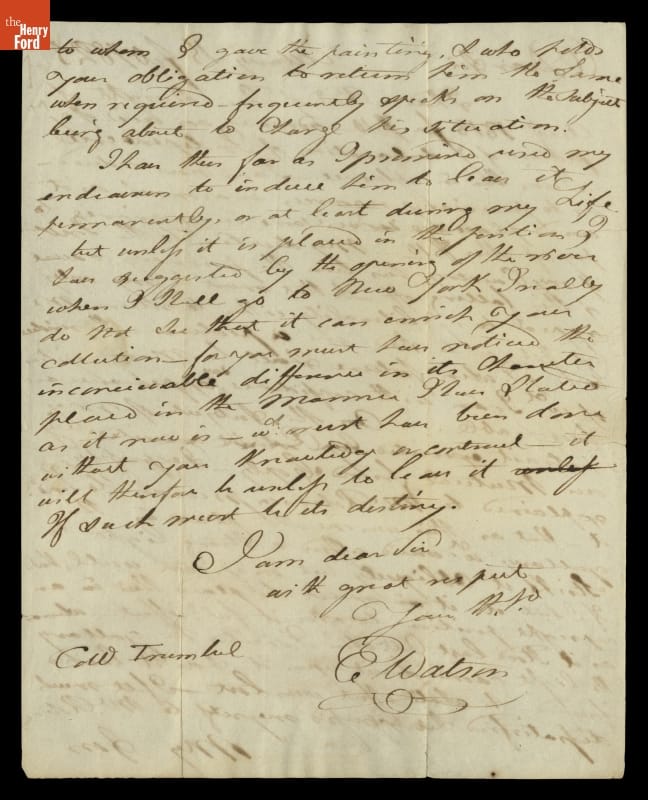 the
Henry
Ford
to whom I gave the painting, & who holds
your obligation to return him the same
when required – frequently speaks on the subject
being about to Change his situation.
I have thus far as I promised used my
endeavors to induce him to leave it
permanently, or at least during my Life
but unless it is placed in the position I
have suggested by the opening of the river
when I shall go to New York I really
do not see that it can enrich your
collection – for you must have noticed the
inconceivable difference in its Character
placed in the manner I have stated
as it now is – wh. must have been done
without your Knowledge or controul – it
will therefore be useless to leave it unless
If such must be its destiny.
I am dear Sir
with great respect
Your
E Watson
Coll Trumbul